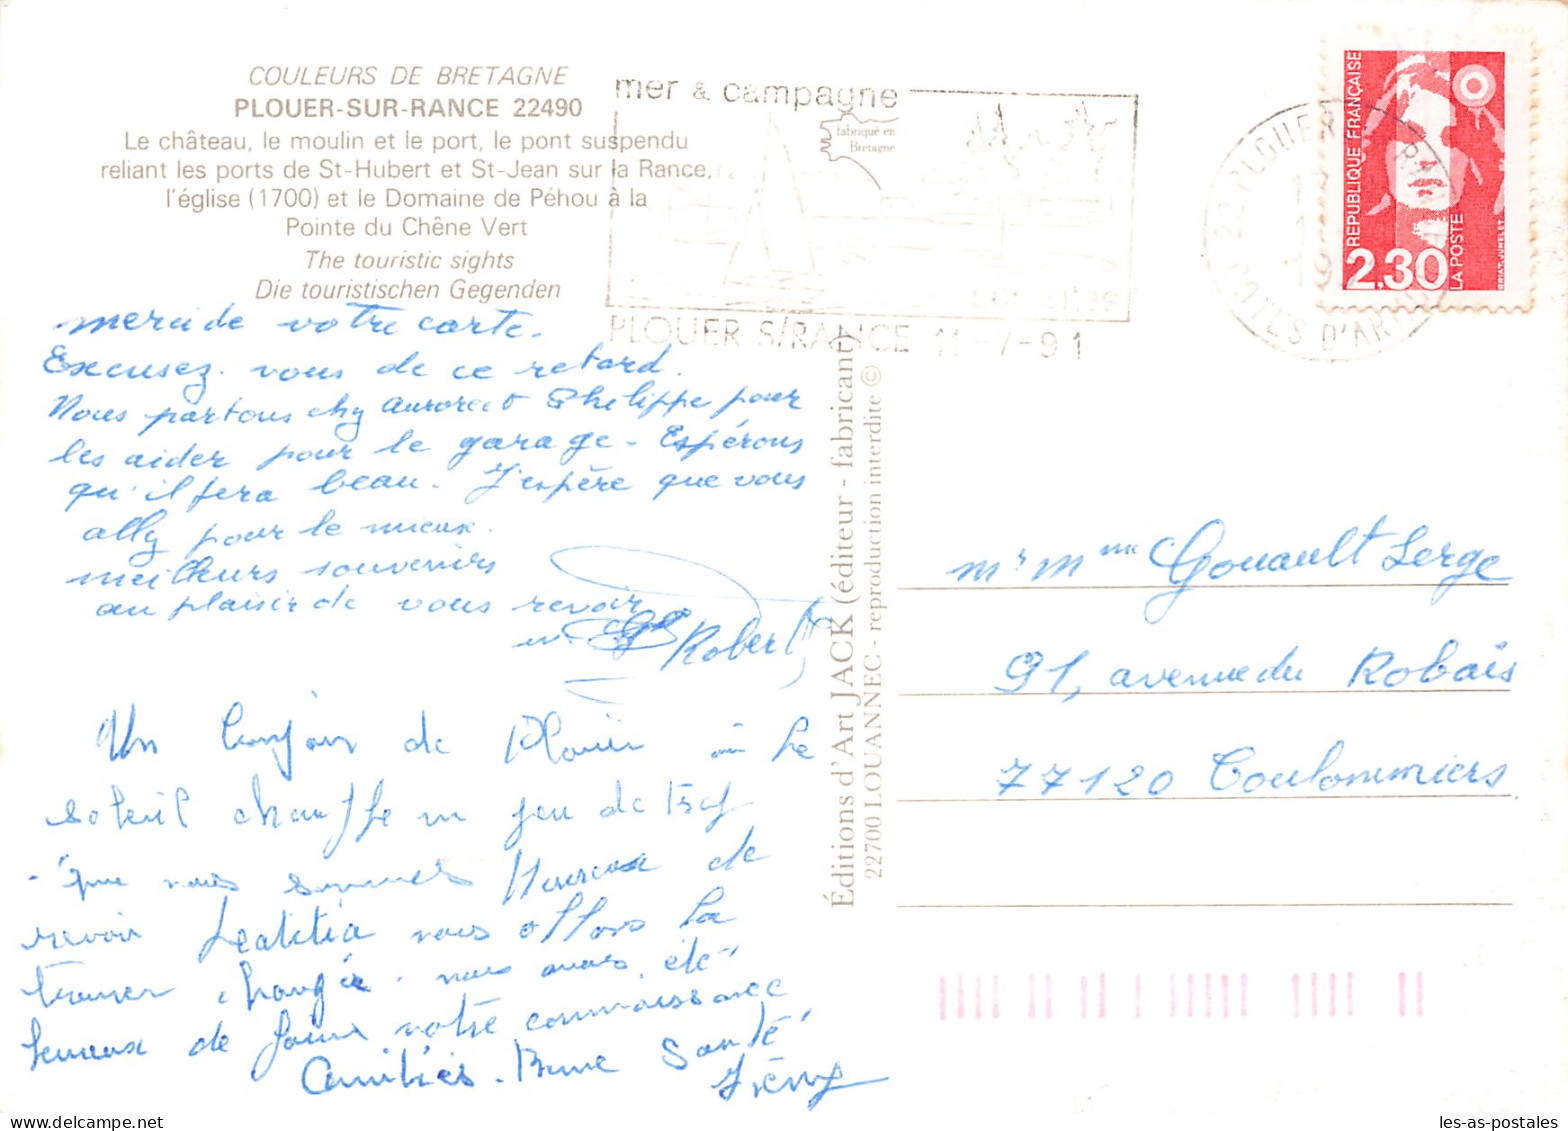 COULEURS DE BRETAGNE
PLOUER-SUR-RANCE 22490
Le château, le moulin et le port, le pont suspendu
reliant les ports de St-Hubert et St-Jean sur la Rance,
l'église (1700) et le Domaine de Péhou à la
Pointe du Chêne Vert
The touristic sights
Die touristischen Gegenden
mer & campagne
fabriqué en
Bretagne
PLOUER S/RANCE 11-7-91
22 PLOUER
COTES D'ARMOR
REPUBLIQUE FRANÇAISE
2,30
LA POSTE
merci de votre carte.
Excusez vous de ce retard.
Nous partons chez Aurore et Philippe pour
les aider pour le garage - Espérons
qu'il fera beau. J'espère que vous
allez pour le mieux.
meilleurs souvenirs
au plaisir de vous revoir
Robert
Un bonjour de Plouër où le
soleil chauffe un peu de trop
- que nous sommes heureux de
revoir Leatitia nous allons la
trouver changée. nous avons été
heureux de faire votre connaissance
Amitiés - Bonne Santé
Éditions d'Art JACK (éditeur - fabricant)
22700 LOUANNEC - reproduction interdite ©
Mr Mme Gouault Serge
91, avenue du Robais
77120 Coulommiers
les-as-postales